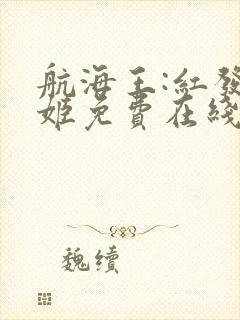 航海王:紅發
姬免費在綫
魏續